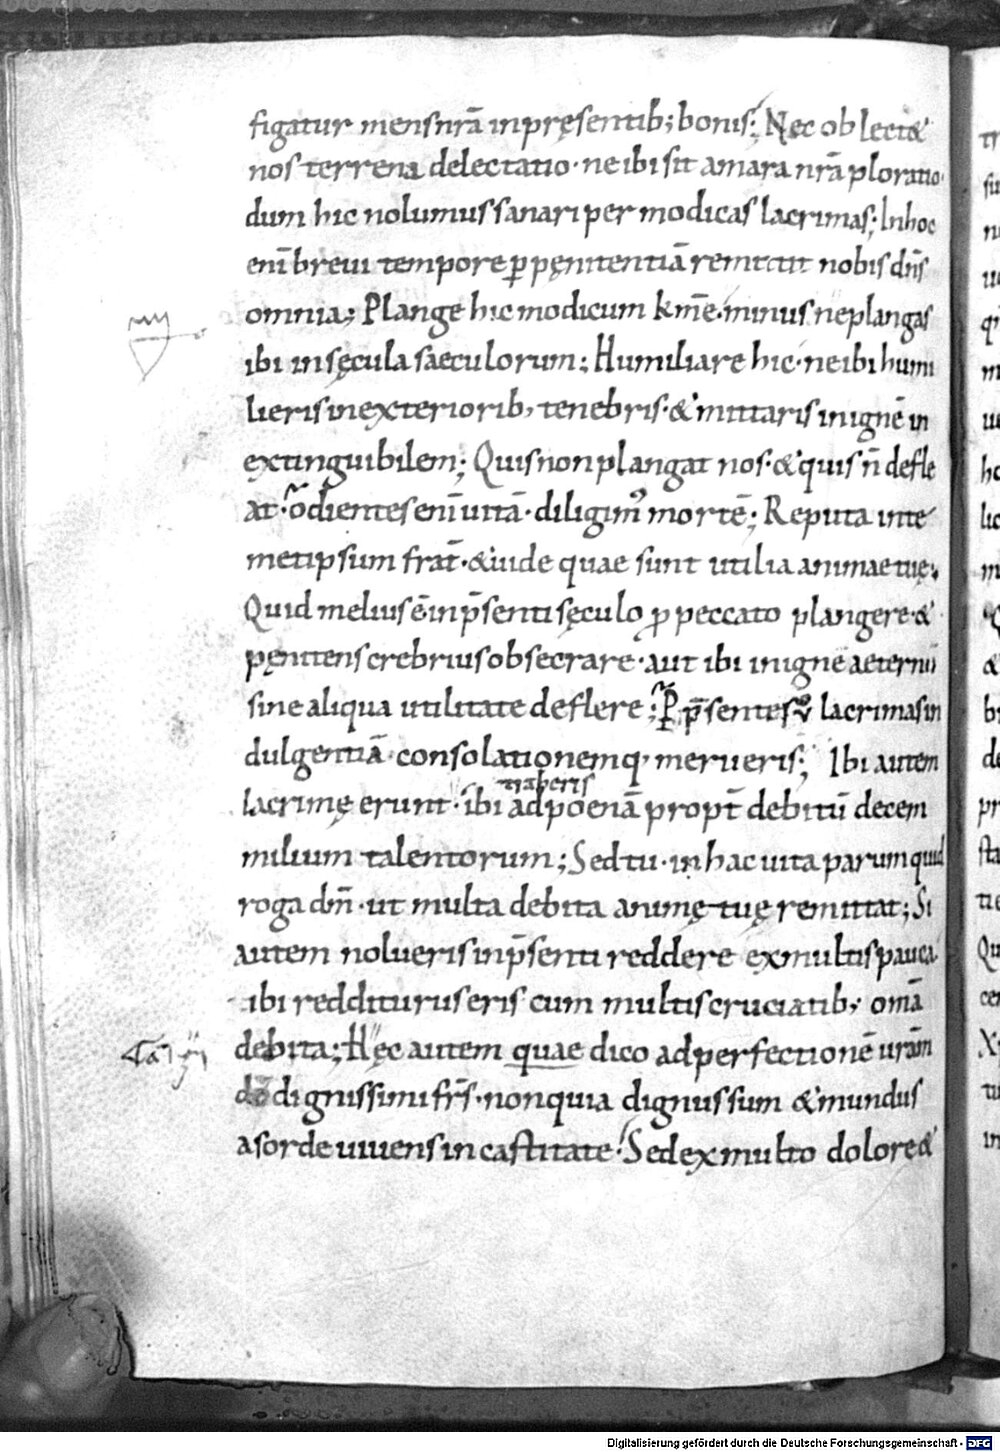 figatur mens nr̄a in pręsentib; bonis; Nec oblect&
nos terrena delectatio· ne ibi sit amara nr̄a ploratio·
dum hic nolumus sanari per modicas lacrimas; In hoc
enī brevi tempore ꝑ pęnitentiā remittit nobis dn̄s
omnia; Plange hic modicum km̄e· minus ne plangas
ibi in sęcula saeculorum; Humiliare hic· ne ibi humi
lieris in exteriorib; tenebris· & mittaris in ignē in
extinguibilem; Quis non plangat nos· & quis n̄ defle
at· odientes enī vitā· diligim᾽ mortē; Reputa in te
metipsum frat̄· & vide quae sunt utilia animae tuę;
Quid melius ē in p̄senti sęculo ꝓ peccato plangere· &
pęnitens crebrius obsecrare· aut ibi in igne aeterno
sine aliqua utilitate deflere; p̄sentes lacrimas in
dulgentiā· consolationemq; merueris; Ibi autem
lacrimę erunt· ibi ad poenā propt̄ debitū decem
traheris
milium talentorum; Sed tu· in hac vita parum quid
roga dm̄· ut multa debita animę tuę remittat; Si
autem nolueris in p̄senti reddere ex multis pauca·
ibi redditurus eris cum multis cruciatib; omā
debita; Hęc autem quae dico ad perfectionē vrām
dignissimi frs̄· non quia dignus sum & mundus
a sorde vivens in castitate· Sed ex multo dolore &
Digitalisierung gefördert durch die Deutsche Forschungsgemeinschaft - DFG